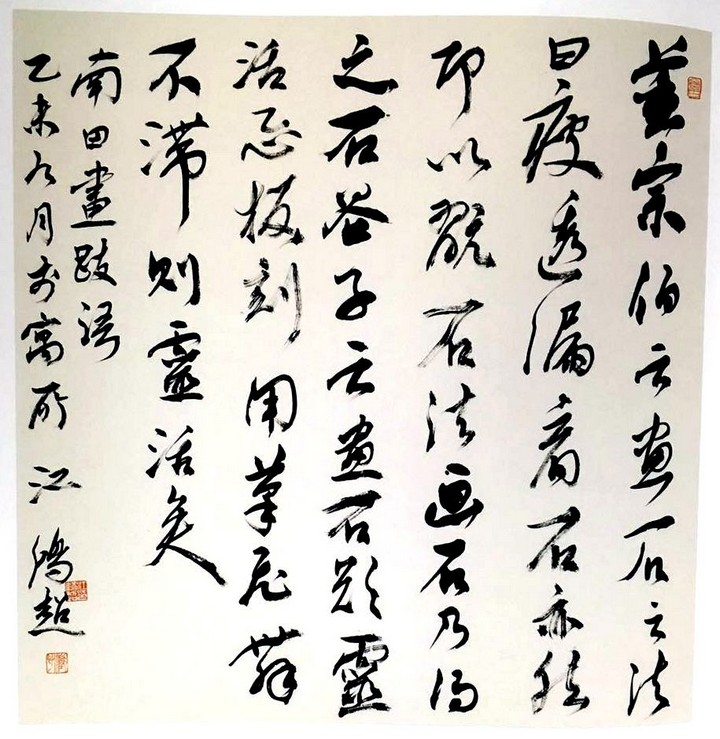 董宗伯云畫石之法
曰瘦透漏看石亦然
即以翫石法画石乃得
之石谷子云畫石欲靈
活忌板刻用筆飛舞
不滞则靈活矣
南田畫跋语
乙未九月於寓所 江鸿超